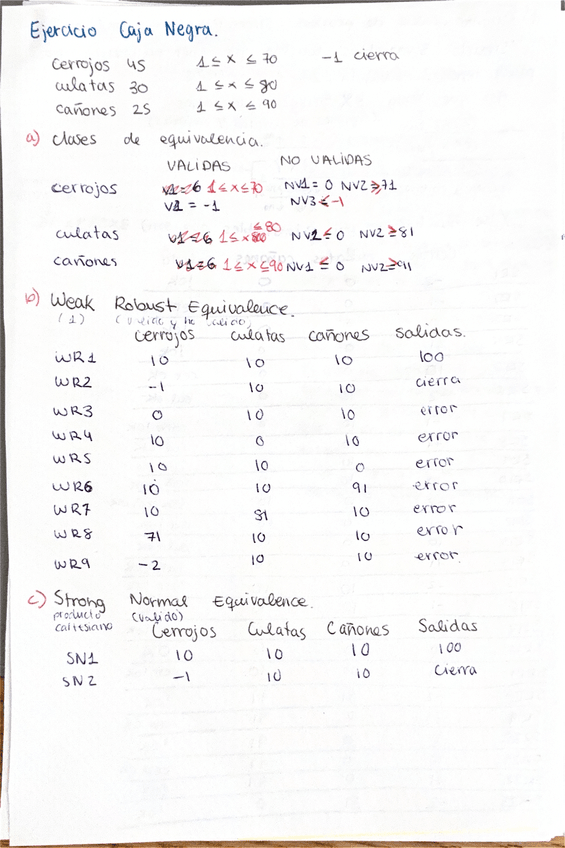 Ejercicio Caja Negra.
cerrojos 45 1 ≤ x ≤ 70 -1 cierra
culatas 30 1 ≤ x ≤ 80
cañones 25 1 ≤ x ≤ 90
a) Clases de equivalencia.
VALIDAS NO VALIDAS
cerrojos V1 = 6 1 ≤ x ≤ 70 NV1 = 0 NV2 ≥ 71
V2 = -1 NV3 < -1
culatas V1 = 6 1 ≤ x ≤ 80 NV1 ≤ 0 NV2 ≥ 81
cañones V1 = 6 1 ≤ x ≤ 90 NV1 ≤ 0 NV2 ≥ 91
b) Weak Robust Equivalence.
(1) (valido y no valido)
Cerrojos culatas cañones salidas.
WR1 10 10 10 100
WR2 -1 10 10 cierra
WR3 0 10 10 error
WR4 10 0 10 error
WR5 10 10 0 error
WR6 10 10 91 error
WR7 10 81 10 error
WR8 71 10 10 error
WR9 -2 10 10 error.
c) Strong Normal Equivalence.
producto cartesiano (valido)
Cerrojos Culatas Cañones Salidas
SN1 10 10 10 100
SN2 -1 10 10 Cierra